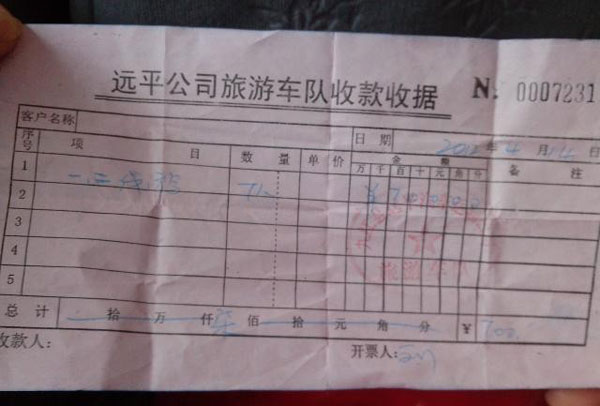 远平公司旅游车队收款收据 No 0007231
客户名称 日期 2012年4月14日
序号 项目 数量 单价 金额 备注
万 千 百 十 元 角 分
1
2 ¥70000
3
4
5 旅游车队
总计 拾 万 仟 柒 佰 拾 元 角 分 ¥700
收款人: 开票人: